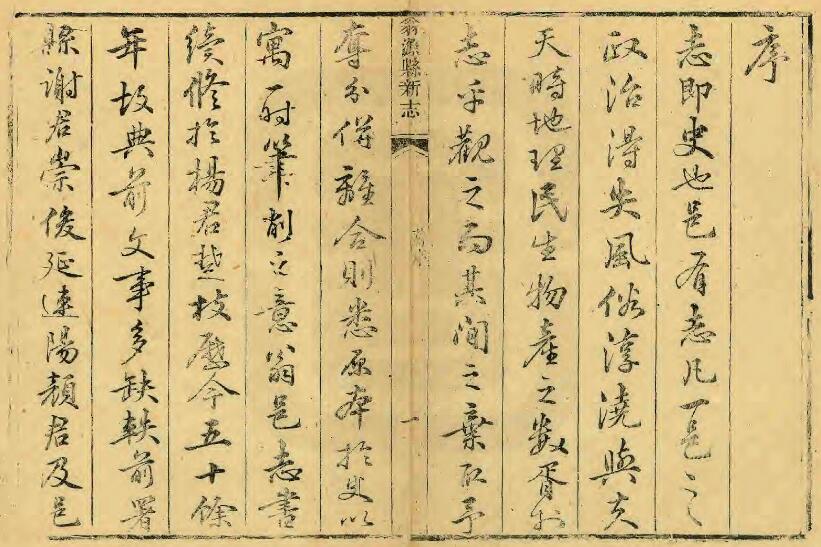 序
志即史也邑有志凡一邑之
政治得失風俗淳澆與夫
天時地理民生物產之数胥於
志乎觀之而其間之棄取予
翁源縣新志
一
奪分併離合則悉原本於史以
寓所筆削之意翁邑志書
續修於楊君楚枝歷今五十餘
年故典前文事多缺軼前署
縣謝君崇俊延連陽顏君及邑